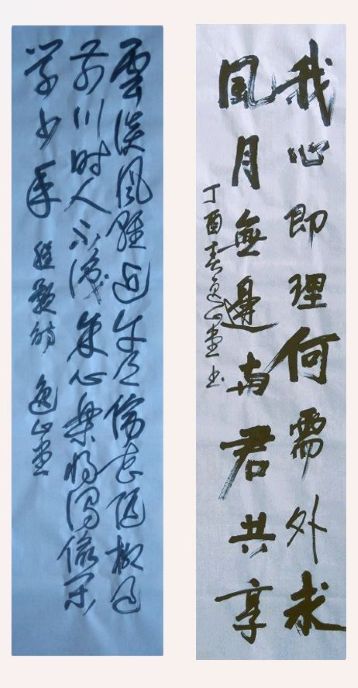 我心即理何需外求
風月無邊與君共享
丁酉春逸山堂书
雲淡風輕近午天傍花隨柳過
前川時人不識余心樂將謂偷閑
學少年 程顥詩 逸山堂